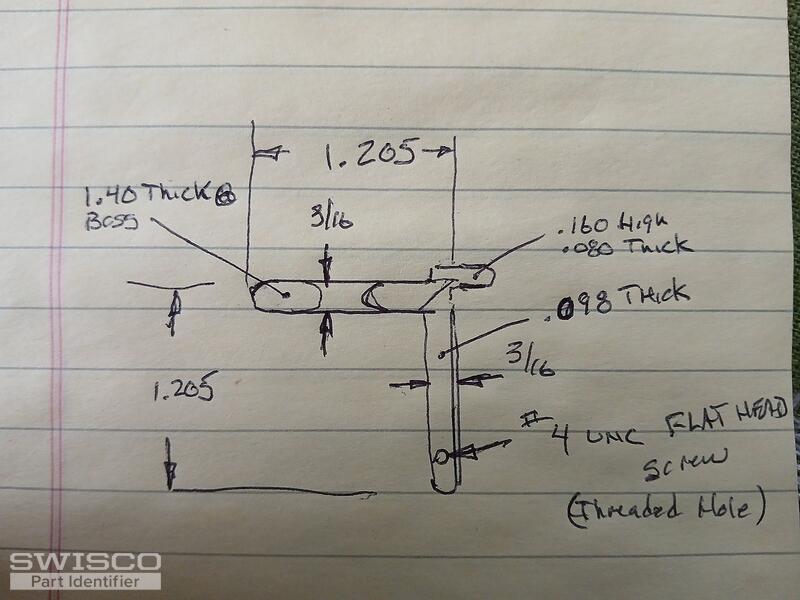 1.205
1.40 Thick @
Boss
3/16
.160 High
.080 Thick
.098 Thick
3/16
1.205
#4 UNC FLAT HEAD
SCREW
(Threaded Hole)
SWISCO
Part Identifier